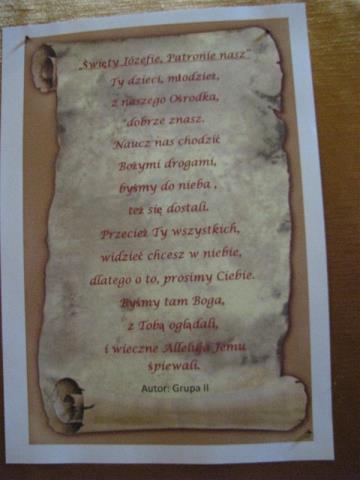 „Święty Józefie, Patronie nasz"
Ty dzieci, młodzież,
z naszego Ośrodka,
dobrze znasz.
Naucz nas chodzić
Bożymi drogami,
byśmy do nieba ,
też się dostali.
Przecież Ty wszystkich,
widzieć chcesz w niebie,
dlatego o to, prosimy Ciebie.
Byśmy tam Boga,
z Tobą oglądali,
i wieczne Alleluja Jemu
śpiewali.
Autor: Grupa II